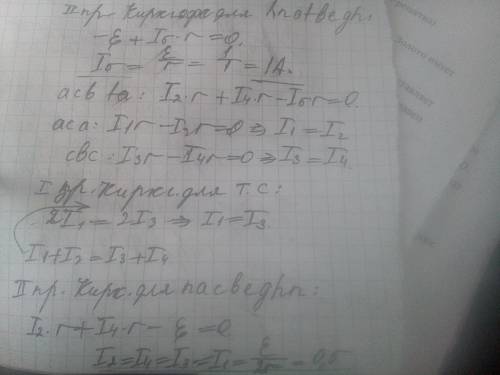 II пр. Кирхгофа для hnatведh:
-ℰ + I₅·r = 0.
I₅ = ℰ/r = 1/1 = 1A.
acbta: I₂·r + I₄·r - I₅r = 0.
aca: I₁r - I₂r = 0 ⇒ I₁ = I₂
cbc: I₃r - I₄r = 0 ⇒ I₃ = I₄
I пр. Кирхг. для т. С:
2I₁ = 2I₃ ⇒ I₁ = I₃.
I₁ + I₂ = I₃ + I₄
II пр. Кирх. для nacbedhn:
I₂·r + I₄·r - ℰ = 0
I₂ = I₄ = I₃ = I₁ = ℰ/2r = 0,5